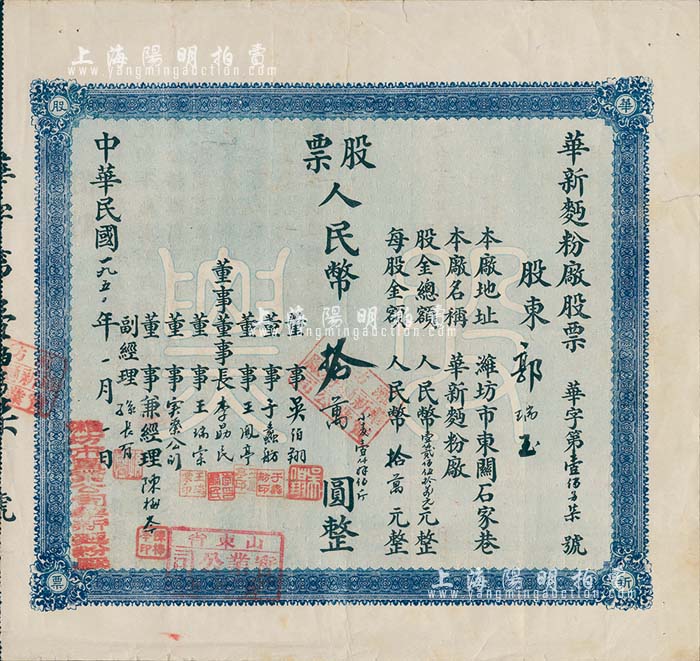 華新麪粉廠股票
華字第壹佰 柒號
股東 郭瑞玉
本廠地址 濰坊市東關石家巷
本廠名稱 華新麪粉廠
股金總額 人民幣 元整
每股金額 人民幣拾萬元整
股票 人民幣拾萬 圓整
董事 吳伯翔
董事 于蠡舫
董事 王鳳亭
董事 董事長 李勗民
董事 王瑞棠
董事 實業公司
董事兼經理 陳梅
副經理 孫長有
中華民國一九五 年一月一日
華 新 股 票
山東省
實業公司
上海陽明拍賣
www.yangmingauction.com
上海陽明拍賣
www.yangmingauction.com
上海陽明拍賣
www.yangmingauction.com